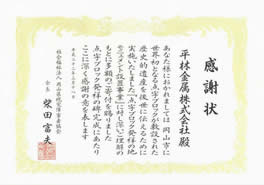 感謝状
平林金属株式会社殿
あなた様におかれましては岡山市に
世界初となる点字ブロックが敷設された
歴史的遺産を後世に伝えるために
実施いたしました「点字ブロック発祥の地
モニュメント設置事業」に対し深いご理解の
もとに多額のご寄付を賜りました
点字ブロック発祥の碑完成にあたり
ここに深く感謝の意を表します
平成二十二年三月十八日
社会福祉法人 岡山県視覚障害者協会
会長 柴田富夫